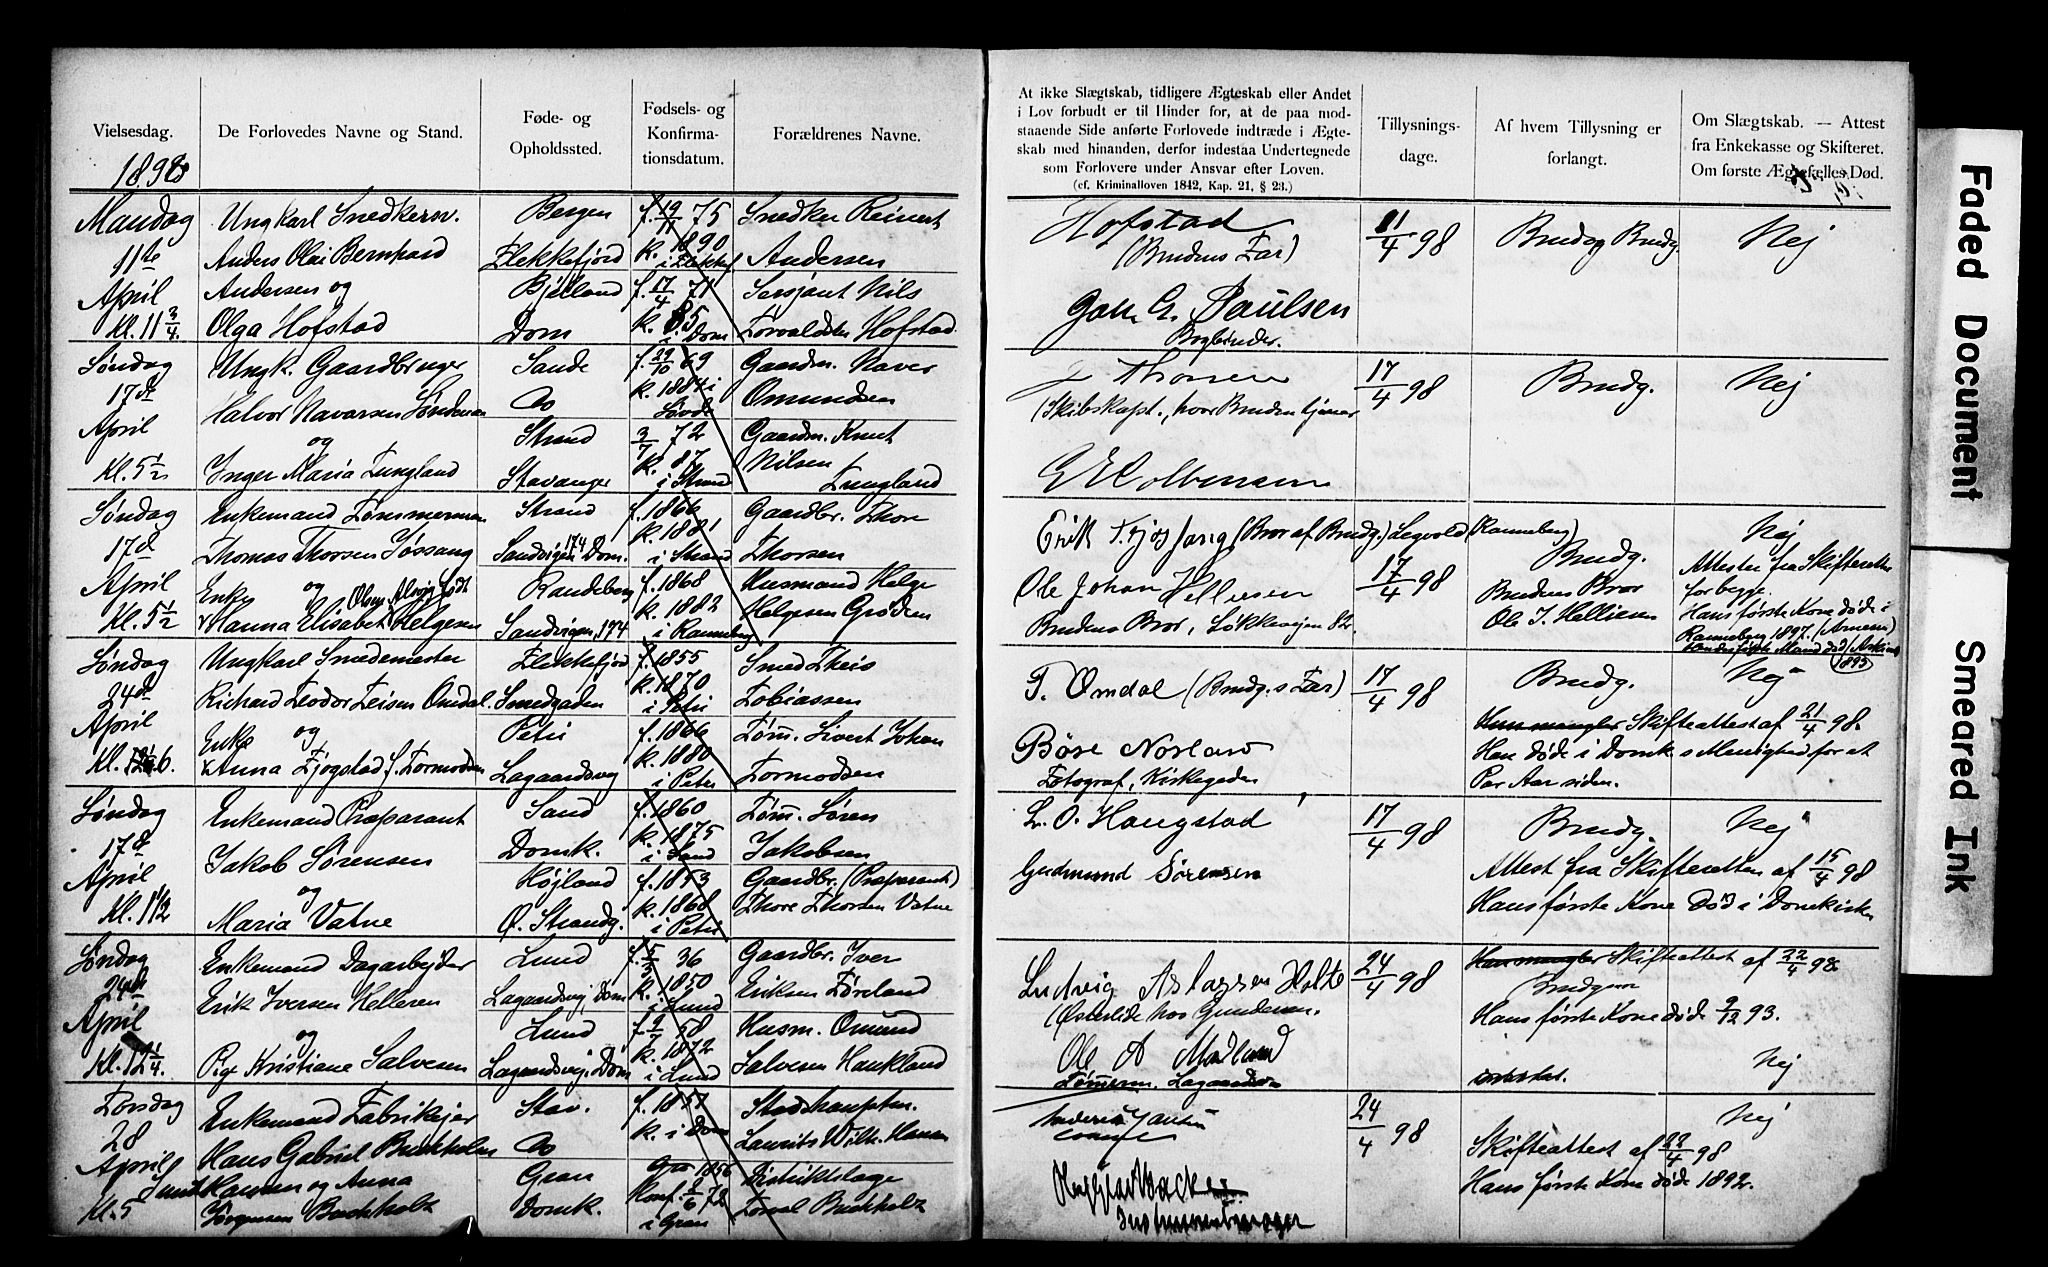 Vielsesdag.
De Forlovedes Navne og Stand.
Føde- og
Opholdssted.
Fødsels- og
Konfirma-
tionsdatum.
Forældrenes Navne.
1898
Mandag
11te
April
Kl. 11 3/4.
Ungkarl Snedkersv.
Anders Olai Bernhard
Andersen og
Olga Hofstad
Bergen
Flekkefjord
Bjelland
Dom
f. 19/11 75
k. 1890
i Flekkef.
f. 17/4 71
k. 85
i Dom
Snedker Reinert
Andersen
Sersjant Nils
Torvaldsen Hofstad
Søndag
17de
April
Kl. 5 1/2
Ungk. Gaardbruger
Halvor Navarsen
og
Inger Maria Tungland
Sande
Do
Strand
Stavanger
f. 29/10 69
k. 1884 i
3/7 72
k. 87
i Strand
Gaardm. Naver
Omundsen
Gaardm. Knut
Nilsen
Tungland
Søndag
17de
April
Kl. 5 1/2
Enkemand Tømmermand
Thomas Thorsen Jøssang
Enke og
Hanna Elisabet Helgesen
Strand
Sandvigen 174 Dom.
Randeberg
Sandvigen, 174
f. 1866
k. 1881
i Strand
f. 1868
k. 1882
i Ranneberg
Gaardbr. Thore
Thorsen
Husmand Helge
Helgesen Grødem
Søndag
24de
April
Kl. 6.
Ungkarl Smedemester
Richard Teodor Teisen Omdal.
Enke og
Anna Fjogstad f. Tormodsen
Flekkefjord
Smedgaden
Petri
Lagaardsvej
f. 1855
k. 1870
i Petri
f. 1866
k. 1880
i Petri
Smed Theis
Tobiassen
Tøm. Sivert Johan
Tormodsen
Søndag
17de
April
Kl. 1 1/2
Enkemand Præparant
Jakob Sørensen
og
Maria Vatne
Sand
Domk.
Højland
Ø. Strandg.
f. 1860
k. 1875
i Sand
f. 1853
k. 1868
i Petri
Tøm. Søren
Jakobsen
Gaardbr. (Præparant)
Thore Thorsen Vatne
Søndag
24de
April
Kl. 12 1/4.
Enkemand Dagarbejder
Erik Iversen Helleren
og
Pige Kristiane Salvesen
Lund
Lagaardsvej, Dom
Lund
Lagaardsvej, Dom
f. 5/3 36
k. 1850
i Lund
f. 9/7 58
k. 1872
i Lund
Gaardbr. Iver
Eriksen Føreland
Husm. Omund
Salvesen Haukland
Torsdag
28
April
Kl. 5
Enkemand Fabrikejer
Hans Gabriel Buchholm
Hansen og Anna
Jørgensen Buchholt
Stav.
Do
Gran
Domk.
f. 1857
k. i Dom
1856
Konf. 2/6 72
i Gran
Stadshauptm.
Laurits Wilh. Hansen
Distriktslæge
Buchholt
At ikke Slægtskab, tidligere Ægteskab eller Andet
i Lov forbudt er til Hinder for, at de paa mod-
staaende Side anførte Forlovede indtræde i Ægte-
skab med hinanden, derfor indestaa Undertegnede
som Forlovere under Ansvar efter Loven.
(cf. Kriminalloven 1842, Kap. 21, § 23.)
Tillysnings-
dage.
Af hvem Tillysning er
forlangt.
Om Slægtskab. — Attest
fra Enkekasse og Skifteret.
Om første Ægtefælles Død.
Hofstad
(Brudens Far)
G. Paulsen
Bogbinder.
11/4 98
Brud og Brudg.
Nej
Thorsen
(Skibskapt., hvor Bruden tjener
17/4 98
Brudg.
Nej
Erik Fjøssang (Bror af Brudg.) (Ranneberg)
Ole Johan Helliesen
Brudens Bror, Løkkevejen 82.
17/4 98
Brudg.
Brudens Bror
Ole J. Helliesen
Nej
Attester fra Skifteretten
for begge.
Hans første Kone døde i
Ranneberg 1897.
1893
T. Omdal (Brudg.s Far)
Børe Norland
Fotograf, Kirkegaden
17/4 98
Brudg.
Nej
Skifteattest af 21/4 98.
Han døde i Domk.s Menighed for et
Par Aar siden.
L. O. Haugstad
Gudmund Sørensen
17/4 98
Brudg.
Nej
Attest fra Skifteretten af 15/4 98
Hans første Kone død i Domkirken
Ludvig Aslagsen Holte
(Østerlide hos Gundersen.
Ole A Madland
Tømmerm. Lagaardsv.
24/4 98
Han mangler Skifteattest af 22/4 98.
Brudgom
Hans første Kone døde 9/12 93.
Nej
24/4 98
Nej
Skifteattest af 22/4 98
Hans første Kone døde 1892.
Instrumentmager
Faded Document
Smeared Ink